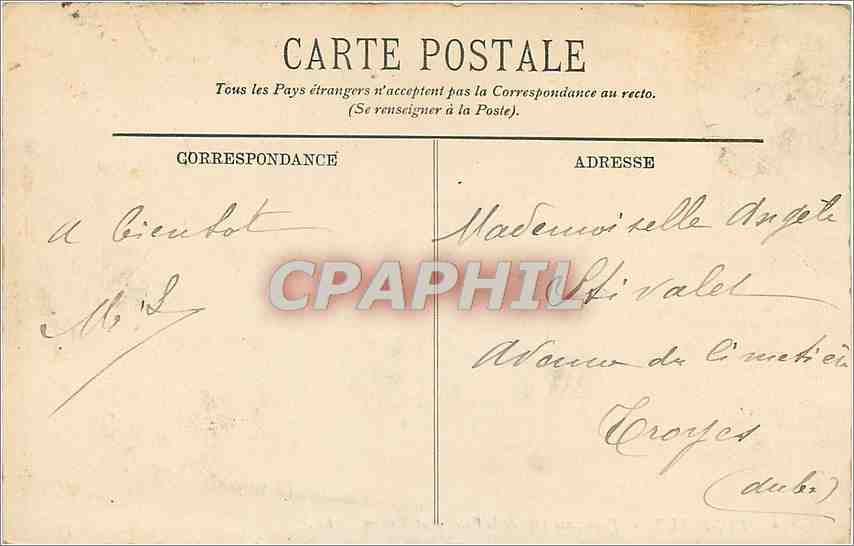 CARTE POSTALE
Tous les Pays étrangers n'acceptent pas la Correspondance au recto.
(Se renseigner à la Poste).
CORRESPONDANCE
ADRESSE
A bientot
Mademoiselle Angèle
CPAPHIL
Stivalet
Avenue du Cimetière
Troyes
(Aube)